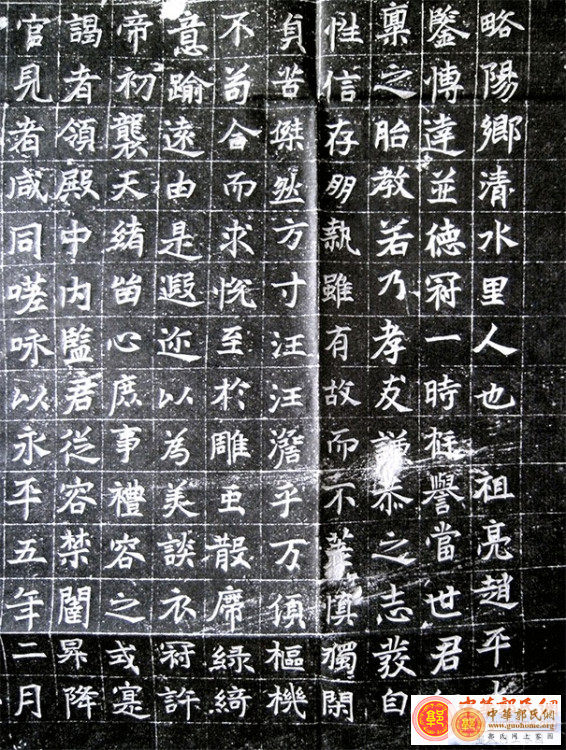 略陽鄉清水里人也 祖亮趙平
鑒博達並德冠一時譽當世君
稟之胎教若乃孝友謙恭之志發自
性信存朋執雖有故而不棄慎獨閑
貞苦傑然方寸汪汪澹乎万頃樞機
不苟合而求悅至於雕虫散席綠綺
意踰遠由是遐迩以為美談衣冠許
帝初襲天緒留心庶事禮容之或寔
謁者領殿中內監君從容禁闈昇降
官見者咸同嗟咏以永平五年二月
中華郭氏網
郭氏网上家園